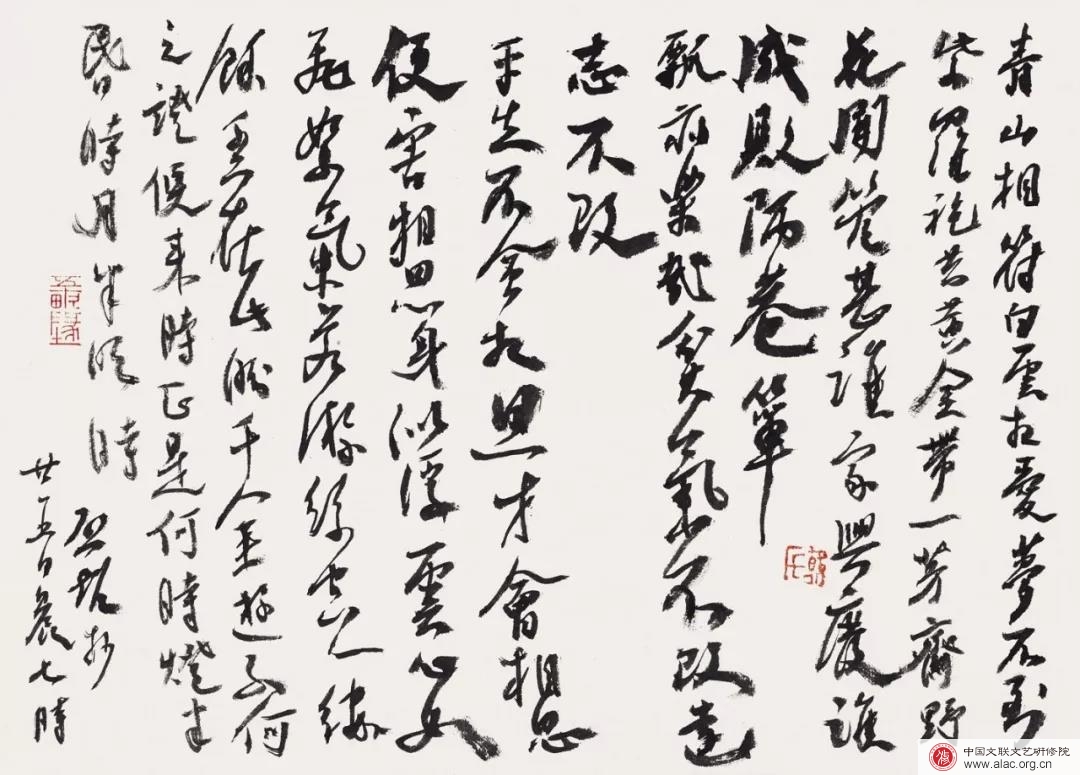 青山相待白雲相愛夢不到
紫羅袍共黄金帶一茅齋野
花開管甚誰家興廢誰
成敗陋巷簞
瓢亦樂哉貧氣不改達
志不改
平生不會相思才會相思
便害相思身似浮雲心如
飛絮氣若游絲空一縷
餘香在此盼千金遊子何
之證候來時正是何時燈半
昏時月半明時
抄
廿五日晨七時
中国文联文艺研修院
www.alac.org.cn